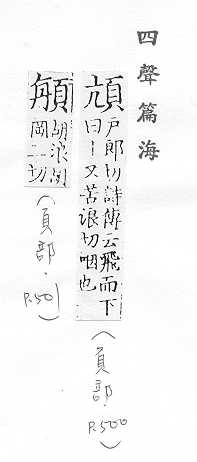 四聲篇海
頏
戶郎切詩傳云飛而下
曰丨又苦浪切咽也
(頁部.P.500)
胡浪
岡二切
(頁部.P.501)